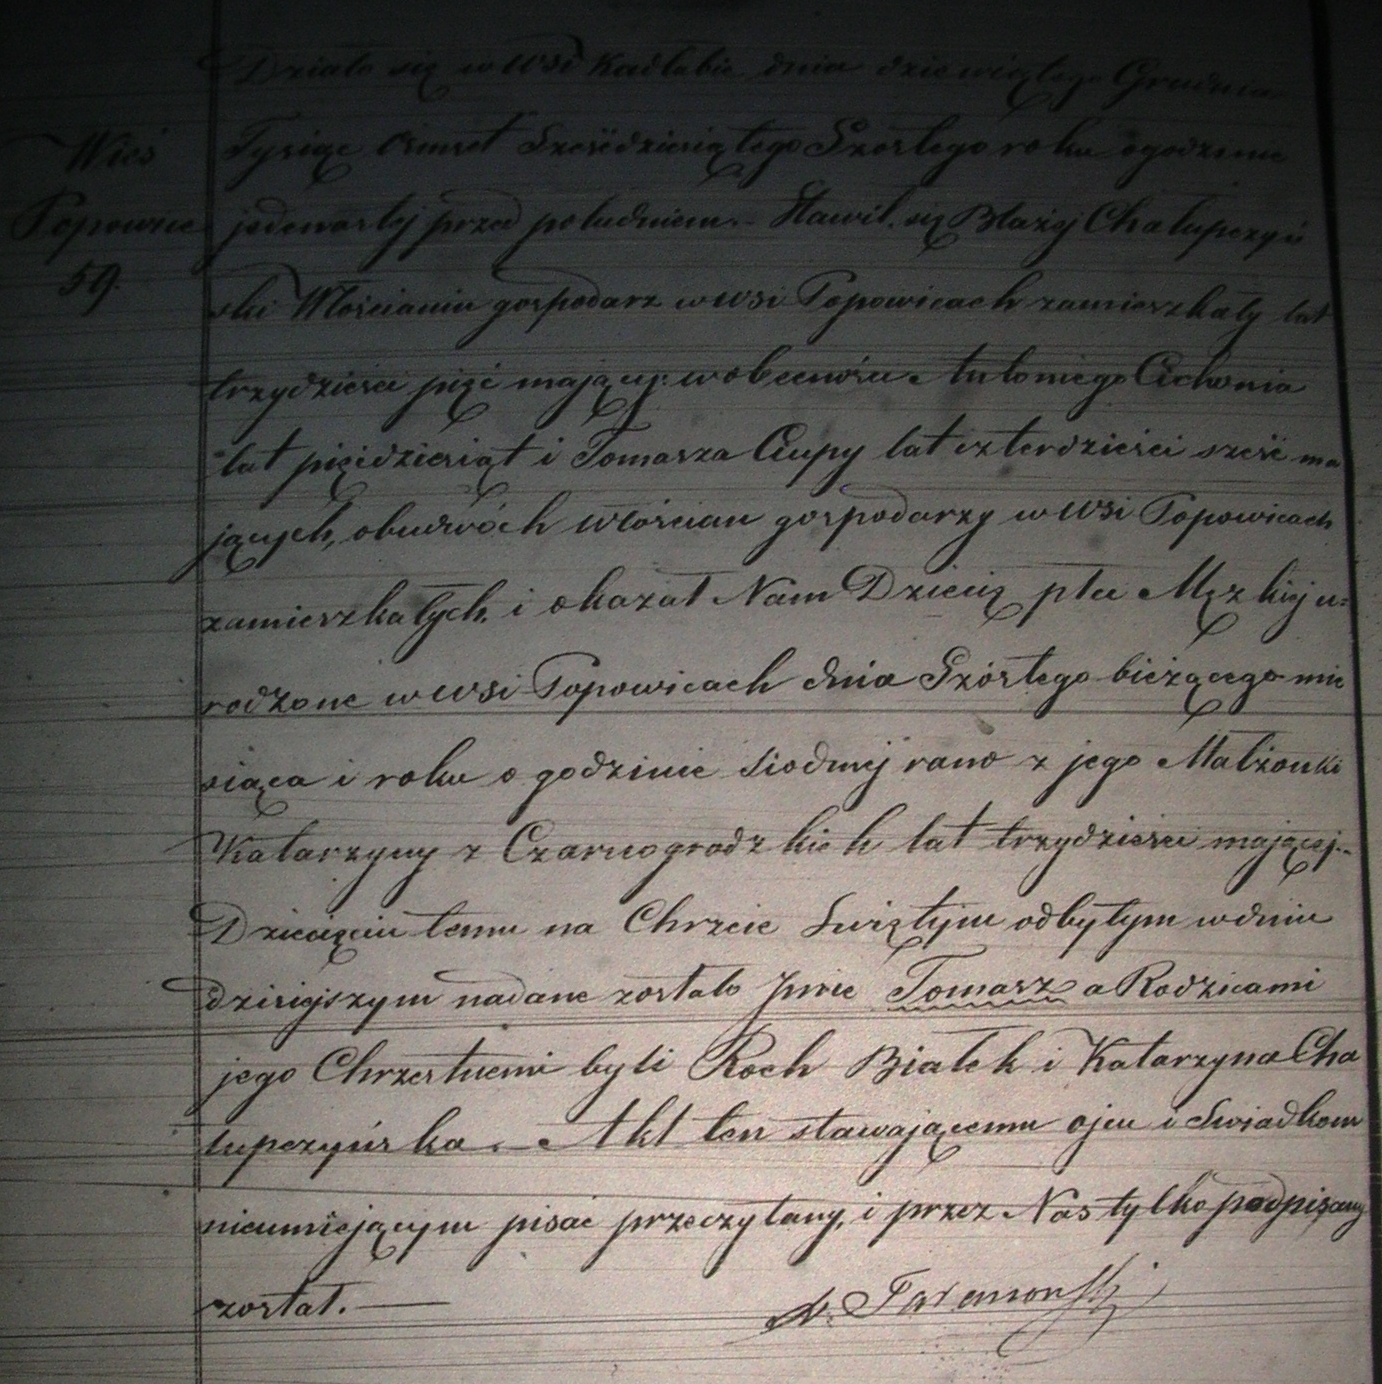 Działo się w wsi Kadłubie dnia dziewiątego Grudnia
Wieś
Tysiąc ośmset Sześćdziesiątego Szóstego roku o godzinie
Popowice
jedenastej przed południem.- Stawił się Błażej Chałupczyń
59.
ski Włościanin gospodarz w wsi Popowicach zamieszkały lat
trzydzieści pięć mający w obecności Antoniego Cichonia
lat pięćdziesiąt i Tomasza Ciupy lat czterdzieści sześć ma
jących, obudwóch włościan gospodarzy w wsi Popowicach
zamieszkałych, i okazał Nam Dziecię płci Męzkiej u=
rodzone w wsi Popowicach dnia Szóstego bieżącego mie
siąca i roku o godzinie siodmej rano z jego Małżonki
Katarzyny z Czarnogrodzkich lat trzydzieści mającej.-
Dziecięciu temu na Chrzcie Świętym odbytym w dniu
dzisiejszym nadane zostało Jmie Tomasz a Rodzicami
jego Chrzestnemi byli Roch Białek i Katarzyna Cha
łupczyńska. – Akt ten stawającemu ojcu i Świadkom
nieumiejącym pisać przeczytany, i przez Nas tylko podpisany
został. —